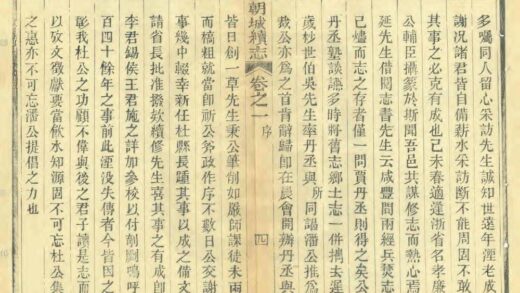 多囑同人留心采訪先生誠知世遠年湮老成
謝况諸君皆自備薪水采訪斷不能周固不敢
其事之必克有成也已未春適逢浙省名孝廉
公輔臣攝篆於斯聞吾邑共謀修志而熱心焉
延先生借閱志書先生云咸豐間兩經兵燹志
已燼而志之存者僅一問賈丹丞則得之矣公
丹丞塾談讌多時將舊志鄉土志一併擕去遲
歲杪世伯吳先生率丹丞與所同謁潘公推爲
裁公亦爲之首肯辭歸卽在農會開辦丹丞與
朝城續志 卷之一 序 四
皆日創一草先生秉公筆削如嚴師課徒未兩
而稿粗就當卽祈公務政作序不數日公交謝
事幾中輟幸新任杜縣長踵其事以成之備文
請省長批准撥欵續修先生喜其事之有成卽
李君錫侯王君施之詳加參校以付剞劂嗚呼
百四十餘年之事前此湮没失傳者今皆因之
彰我杜公之功顧不偉與後之君子讀是志而
以攷文徵獻要當飲水知源固不可忘杜公集
之惠亦不可忘潘公提倡之力也